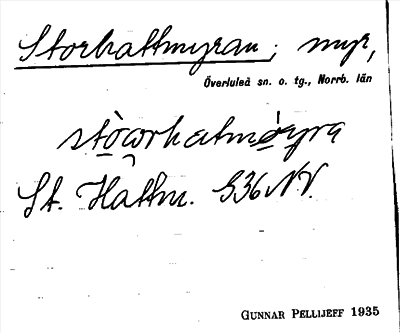 Storhattmyran; myr,
Överluleå sn. o. tg., Norrb. län
stòworhatmǿyra
St. Hattm. S36NV.
GUNNAR PELLIJEFF 1935